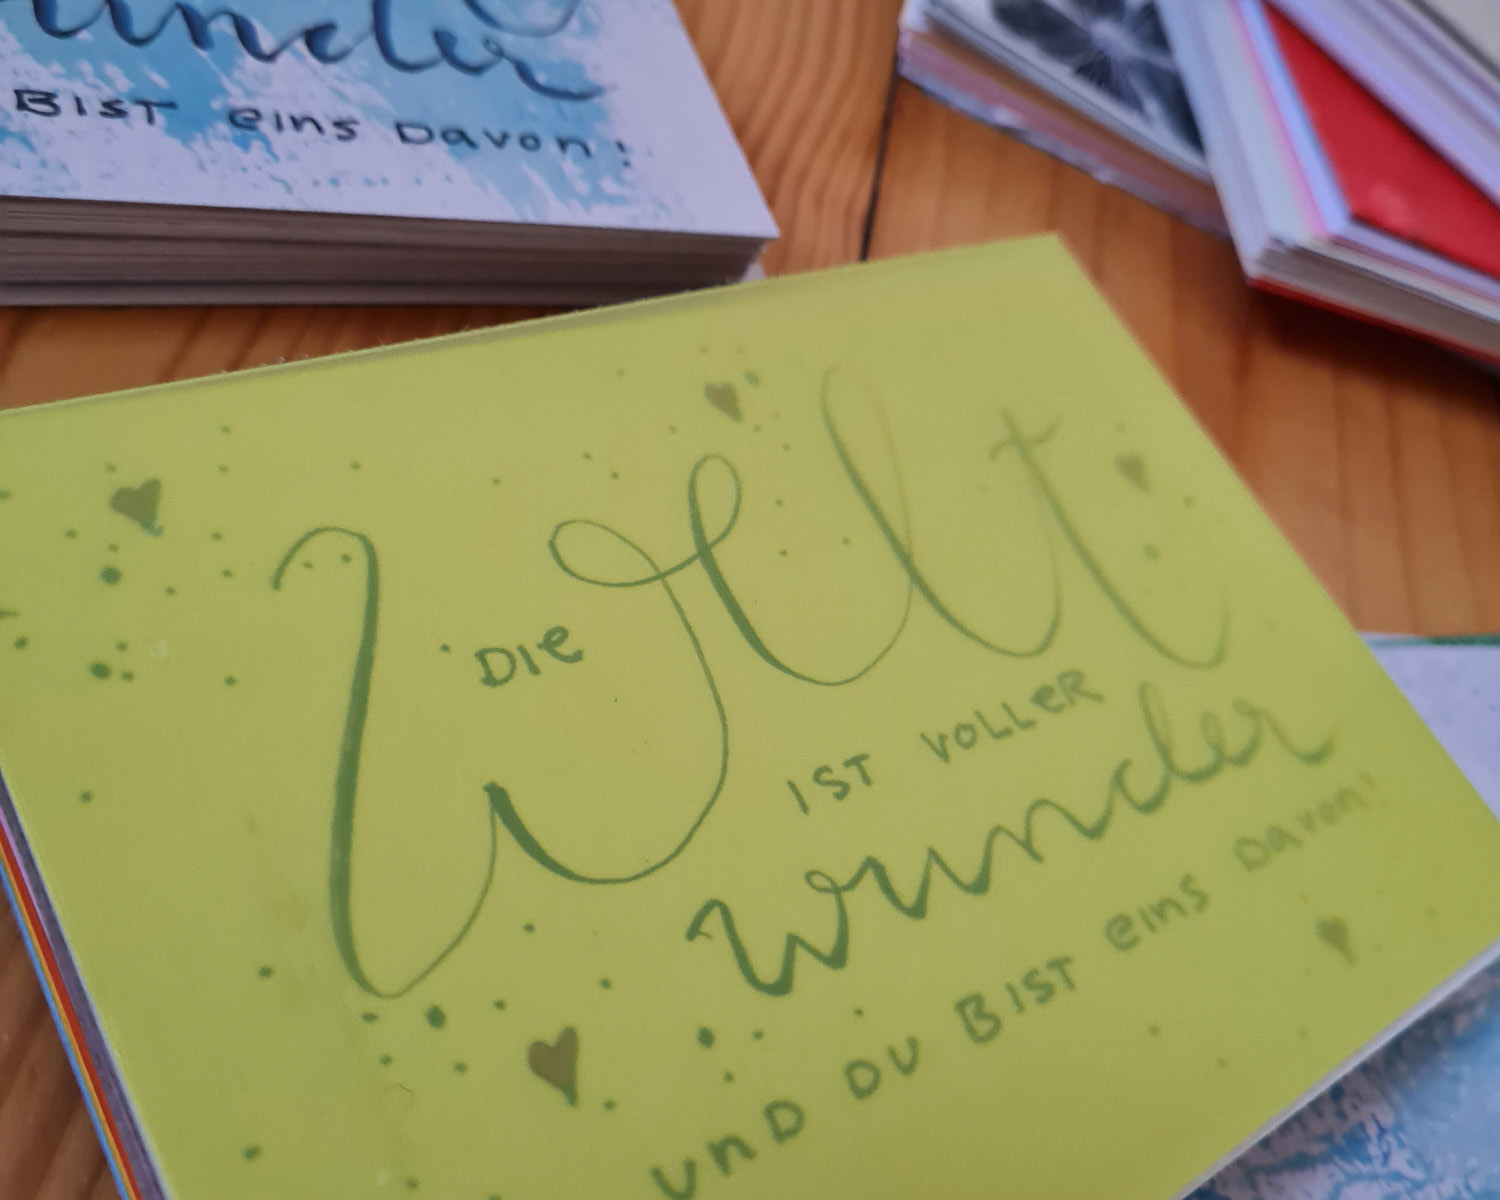 wunder
BIST eins Davon!
DIE
Welt
IST VOLLER
wunder
UND DU BIST eins Davon!